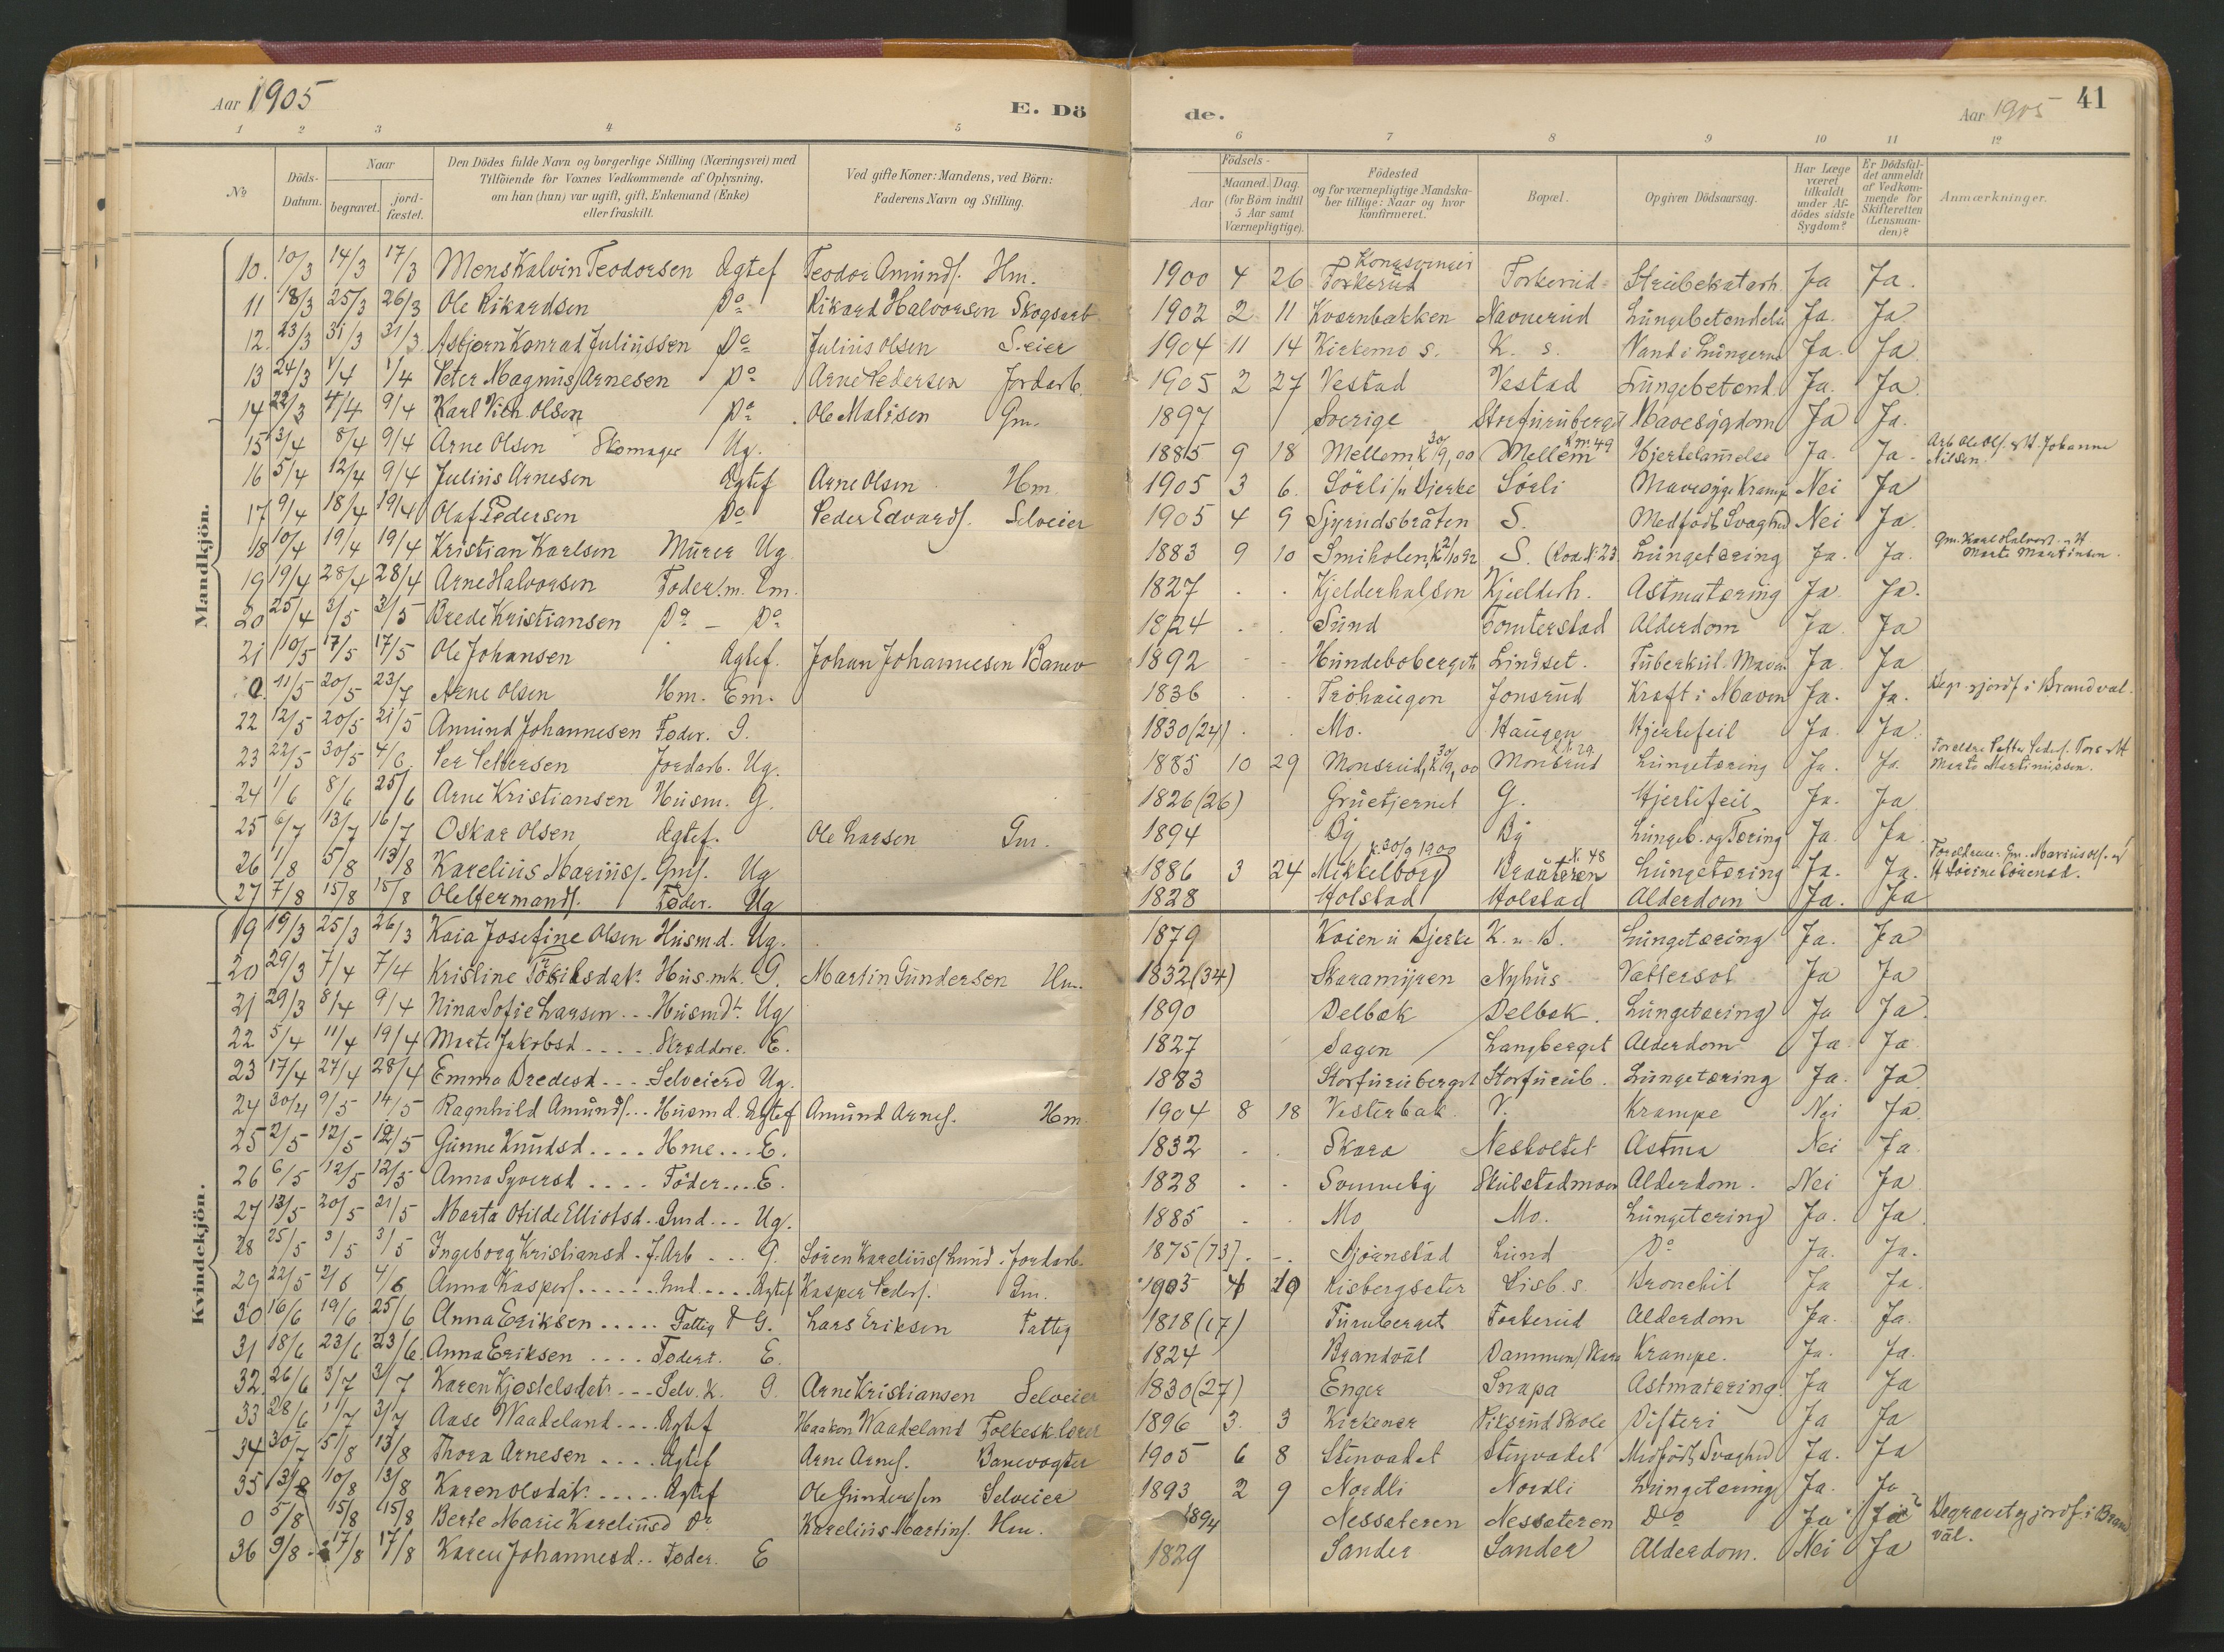 Aar 1905
E. Dö
de.
Aar 1905
41
1 2 3 4 5 6 7 8 9 10 11 12
№
Döds-Datum.
Naar
begravet.
jord-fæstet.
Den Dödes fulde Navn og borgerlige Stilling (Næringsvei) med
Tilföiende for Voxnes Vedkommende af Oplysning,
om han (hun) var ugift, gift, Enkemand (Enke)
eller fraskilt.
Ved gifte Koner: Mandens, ved Börn:
Faderens Navn og Stilling.
Födsels-
Aar
Maaned. Dag.
(for Börn indtil
5 Aar samt
Værnepligtige).
Födested
og for værnepligtige Mandska-
ber tillige: Naar og hvor
konfirmeret.
Bopæl.
Opgiven Dödsaarsag.
Har Læge
været
tilkaldt
under Af-
dödes sidste
Sygdom?
Er Dödsfal-
det anmeldt
af Vedkom-
mende for
Skifteretten
(Lensman-
den)?
Anmærkninger.
Mandkjön.
10. 10/3 14/3 17/3 Mons Kalvin Teodorsen Ægtef Teodor Amunds. Hm. 1900 4 26 Kongsvinger Torkerud Torkerud Strubekatarh. Ja Ja.
11 18/3 25/3 26/3 Ole Rikardsen Do Rikard Halvorsen Skogsarb. 1902 2 11 Kværnbakken Navnerud Lungebetendelse Ja. Ja
12. 23/3 31/3 31/3 Asbjørn Konrad Juliussen Do Julius Olsen S.eier 1904 11 14 Kirkemo s. K. s. Vand i Lungerne Ja. Ja
13 24/3 1/4 1/4 Peter Magnus Arnesen Do Arne Pedersen Jordarb. 1905 2 27 Vestad Vestad Lungebetend. Ja. Ja
14 22/3 4/4 9/4 Karl Vilh. Olsen Do Ole Malisen Gm. 1897 Sverige Storfuruberget Mavesygdom Ja Ja.
15 3/4 8/4 9/4 Arne Olsen Skomager Ug. 1885 9 18 Mellem, K 30/9, 00 Mellem K nr. 49 Hjertelammelse Ja. Ja. Arb. Ole Ols. & H. Johanne Nilsen.
16 5/4 12/4 9/4 Julius Arnesen Ægtef Arne Olsen Hm. 1905 3 6. Sörli u Djerke Sörli Mavesyge Krampe Nei Ja
17 9/4 18/4 19/4 Olaf Pedersen Do Peder Edvards. Selveier 1905 4 9 Sjyrudsbråten S. Medfödt Svaghed Nei Ja.
18 10/4 19/4 19/4 Kristian Karlsen Murer Ug. 1883 9 10 Smiholen, K 2/10 92 S. Lungetæring Ja. Ja. Gm. Karl Halvors. & H Marte Martinsen.
19 19/4 28/4 28/4 Arne Halvorsen Föder.m. Em. 1827 Kjelderhalsen Kjelderh. Astmatæring Ja. Ja.
20 25/4 3/5 3/5 Brede Kristiansen Do - Do 1824 Sund Tomterstad Alderdom Ja. Ja
21 10/5 17/5 17/5 Ole Johansen Ægtef. Johan Johannesen Banev 1892 Hundeboberget Lindset. Tuberkul. Maven Ja. Ja
0. 11/5 20/5 23/7 Arne Olsen Hm. Em. 1836 Tröhaugen Jonsrud Kræft i Maven Ja. Ja. Begr. & jordf i Brandval.
22 12/5 20/5 21/5 Amund Johannesen Föder. G. 1830 (24) Mo. Haugen Hjertefeil Ja. Ja.
23 22/5 30/5 4/6 Per Pettersen Jordarb. Ug. 1885 10 29 Monsrud, K 30/9, 00 Monsrud Lungetæring Ja. Ja. Forældre Petter Peders. & H Marte Martinussen.
24 1/6 8/6 25/6 Arne Kristiansen Husm. G. 1826 (26) Gruetjernet G. Hjertefeil Ja. Ja
25 6/7 13/7 16/7 Oskar Olsen Ægtef. Ole Larsen Gm. 1894 By By Lungeb. og Tæring Ja. Ja
26 1/8 5/8 13/8 Karelius Marius. Gms. Ug 1886 3 24 Mikkelborg K. 30/9 1900 Braateren K. 48 Lungetæring Ja. Ja. Forældrene: Gm. Marius Ols. & H Lovine Sörensd.
27 7/8 15/8 15/8 Ole Hermands. Föder. Ug 1828 Holstad Holstad Alderdom Ja. Ja
Kvindekjön.
19 19/3 25/3 26/3 Kaia Josefine Olsen Husm.d. Ug. 1879 Koien u Djerke K. u. D. Lungetæring Ja. Ja
20 29/3 7/4 7/4 Kristine Törkilsdatr. Hus.mk. G. Martin Gundersen Hm. 1832 (34) Skaramyren Nyhus Vattersot Ja Ja
21 29/3 8/4 9/4 Nina Sofie Larsen Husmdt. Ug 1890 Delbæk Delbæk. Lungetæring Ja Ja.
22 5/4 11/4 19/4 Marte Jakobsd Skræddere. E. 1827 Sagen Langberget Alderdom Ja Ja
23 17/4 27/4 28/4 Emma Bredesd Selveierd Ug. 1883 Storfuruberget Storfurub. Lungetæring Ja. Ja
24 30/4 9/5 14/5 Ragnhild Amunds. Husmd. Ægtef Amund Arnes. Hm. 1904 8 18 Vesterbak. V. Krampe Nei Ja
25 2/5 12/5 12/5 Gunne Knudsd. Hme E. 1832 Skara Nesholtet Astma Nei Ja
26 6/5 12/5 12/5 Anna Syversd Föder. E. 1828 Svenneby Skulstadmoen Alderdom. Nei Ja
27 13/5 20/5 21/5 Marta Otilde Elliotsd. Gmd. Ug. 1885 Mo Mo. Lungetæring Ja. Ja.
28 25/5 3/5 3/5 Ingeborg Kristiansd. J.Arb G. Sören Karelius Lund. Jordarb. 1875 (73) Bjørnstad Lund Do Ja. Ja.
29 22/5 2/6 4/6 Anna Kaspers. Gmd. Ægtef Kasper Peders. Gm. 1905 4 10 Lisbergseter Lisb. s. Bronchit Ja Ja.
30 16/6 19/6 25/6 Anna Eriksen Fattig G. Lars Eriksen Fattig 1818 (17) Furuberget Torkerud Alderdom Ja. Ja.
31 18/6 23/6 23/6. Anna Eriksen Föderr. E. 1824 Brandvål Dammen/Skara Krampe. Ja. Ja.
32. 26/6 3/7 3/7 Karen Kjostelsdatr Selv. K. G. Arne Kristiansen Selveier 1830 (27) Enger Snapa Astmatæring. Ja Ja
33 28/6 1/7 3/7 Aase Waadeland Ægtef Haakon Waadeland Folkesk.lærer 1896 3. 3 Kirkener Piksrud Skole Difteri Ja Ja
34 30/7 5/8 13/8 Thora Arnesen Ægtef Arne Arnes. Banevogter 1905 6 8 Stenvadet Stenvadet Medfödt Svaghed Ja. Ja
35 3/8 10/8 13/8 Karen Olsdatr. Ægtef Ole Gundersen Selveier 1893 2 9 Nordli Nordli Lungetæring Ja. Ja
0 5/8 15/8 15/8 Berte Marie Kareliusd Do Karelius Martins. Hm. 1894 Nessæteren Nessæteren Do Ja Ja Begravet & jordf. i Brandvål.
36 9/8 17/8 17/8 Karen Johannesd. Föder. E 1829 Sander Sander Alderdom. Nei Ja